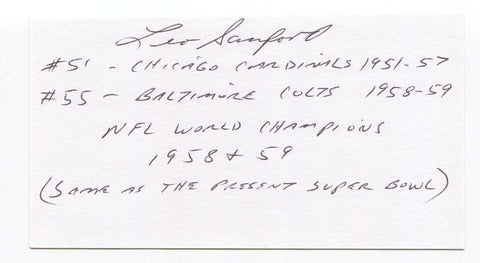 Leo Sanford
#51 - CHICAGO CARDINALS 1951-57
#55 - BALTIMORE COLTS 1958-59
NFL WORLD CHAMPIONS
1958 + 59
(SAME AS THE PRESENT SUPER BOWL)